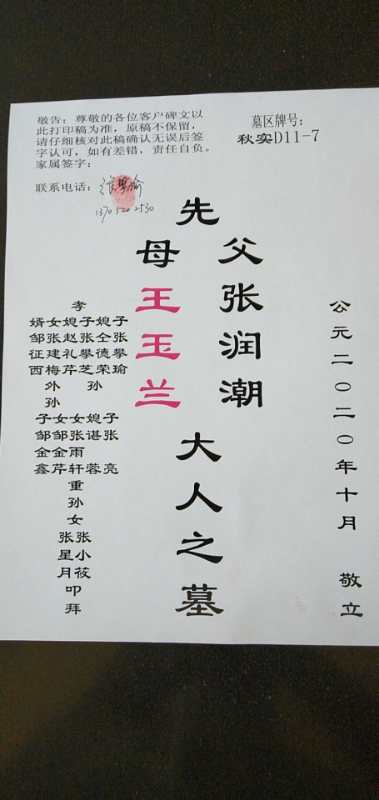 敬告：尊敬的各位客户碑文以
此打印稿为准，原稿不保留，
请仔细核对此稿确认无误后签
字认可，如有差错，责任自负。
家属签字：
联系电话：
墓区牌号：
秋实D11-7
先
父张润潮
母王玉兰
大人之墓
公元二〇二〇年十月 敬立
孝
婿女媳子媳子
邹张赵张仝张
征建礼攀德攀
西梅芹芝荣瑜
外 孙
孙
子女女媳子
邹邹张谌张
金金雨
鑫芹轩蓉亮
重
孙
女
张张
星小
月筱
叩
拜